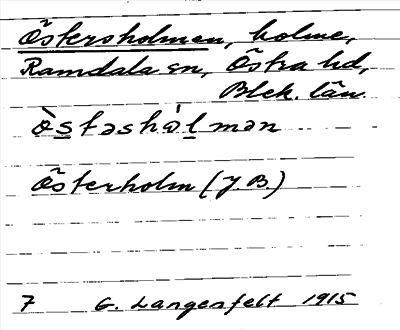 Östersholmen, holme,
Ramdala sn, Östra hd,
Blek. län
ö̀stəshə̀lmən
Österholm (J.B.)
7 G. Langenfelt 1915